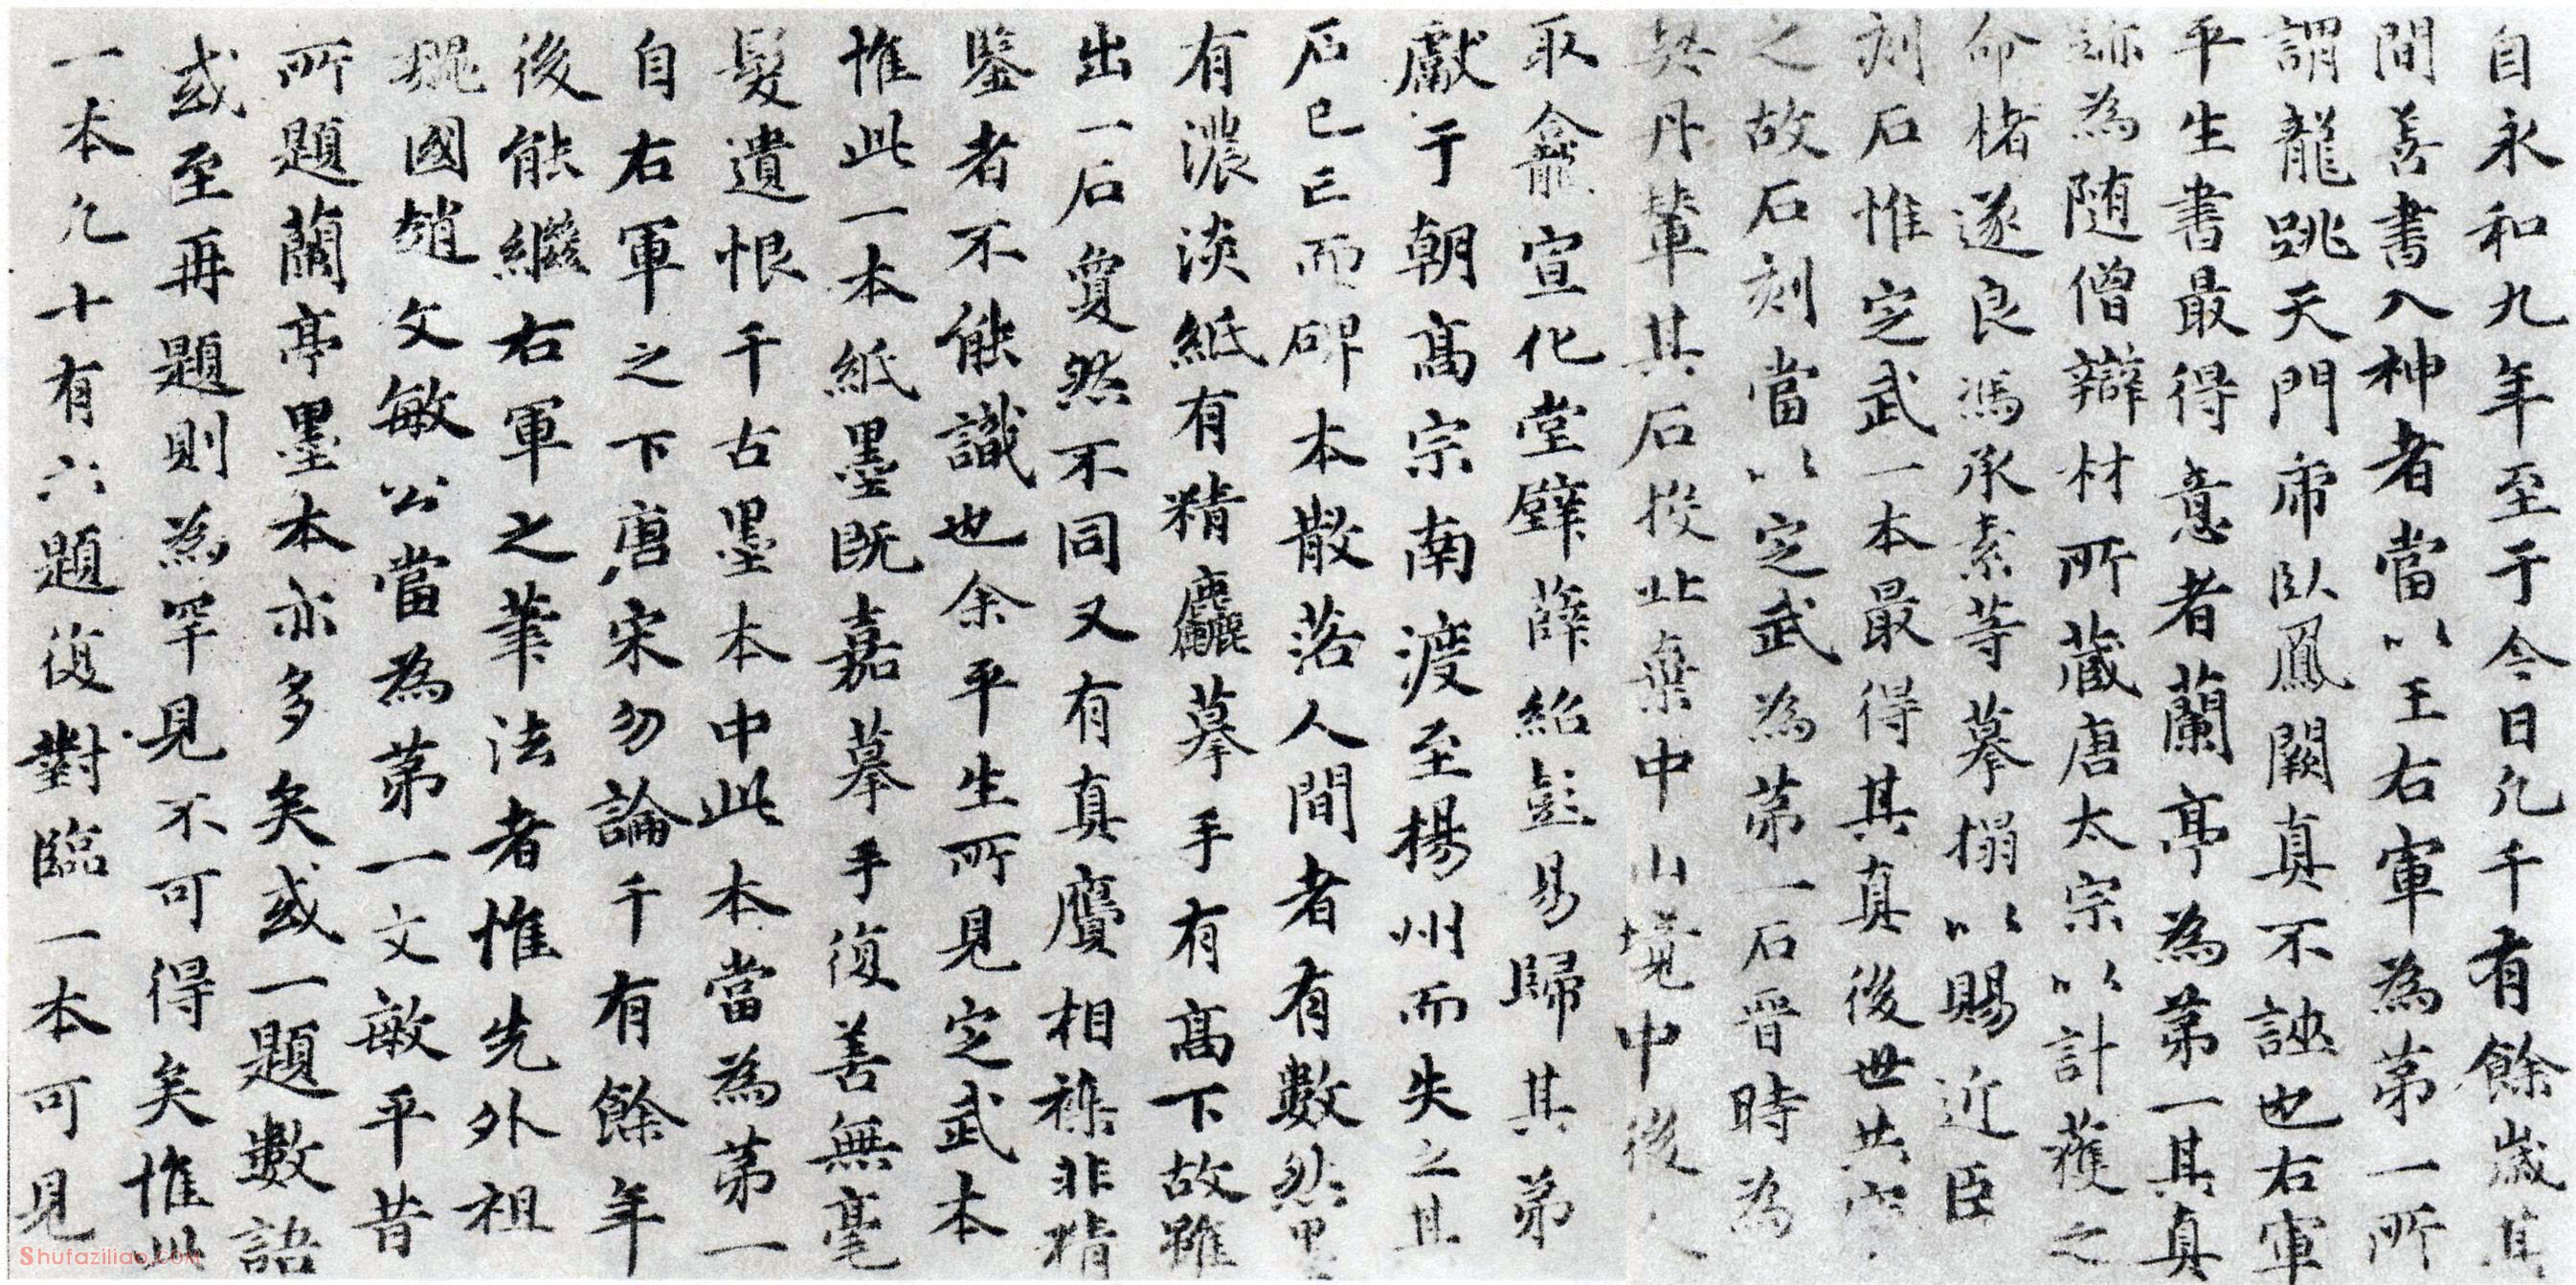 自永和九年至于今日凡千有餘歲其
間善書入神者當以王右軍為第一所
謂龍跳天門席臥鳳闕真不誣也右軍
平生書最得意者蘭亭為第一其真
跡為随僧辯材所蔵唐太宗以計獲之
命楮遂良馮承素等摹搨以賜近臣
刻石惟定武一本最得其真後世共
之故石刻當以定武為第一石晉時為
契丹輦其石投北棄中山境中後人
取龕宣化堂壁薛紹彭易歸其弟
獻于朝高宗南渡至楊州而失之其
石已亡而碑本散落人間者有數然
有濃淡紙有精麤摹手有高下故雖
出一石敻然不同又有真贋相襍非精
鑒者不能識也余平生所見定武本
惟此一本紙墨既嘉摹手復善無毫
髮遺恨千古墨本中此本當為第一
自右軍之下唐宋勿論千有餘年
後能繼右軍之筆法者惟先外祖
魏國趙文敏公當為第一文敏平昔
所題蘭亭墨本亦多矣或一題數語
或至再題則為罕見不可得矣惟此
一本凡十有六題復對臨一本可見
Shufaziliao.com